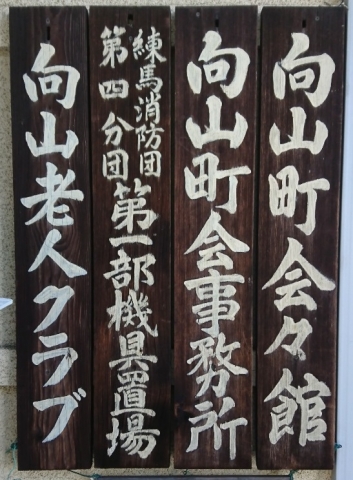 向山町会々館
向山町会事務所
練馬消防団
第四分団
第一部機具置場
向山老人クラブ